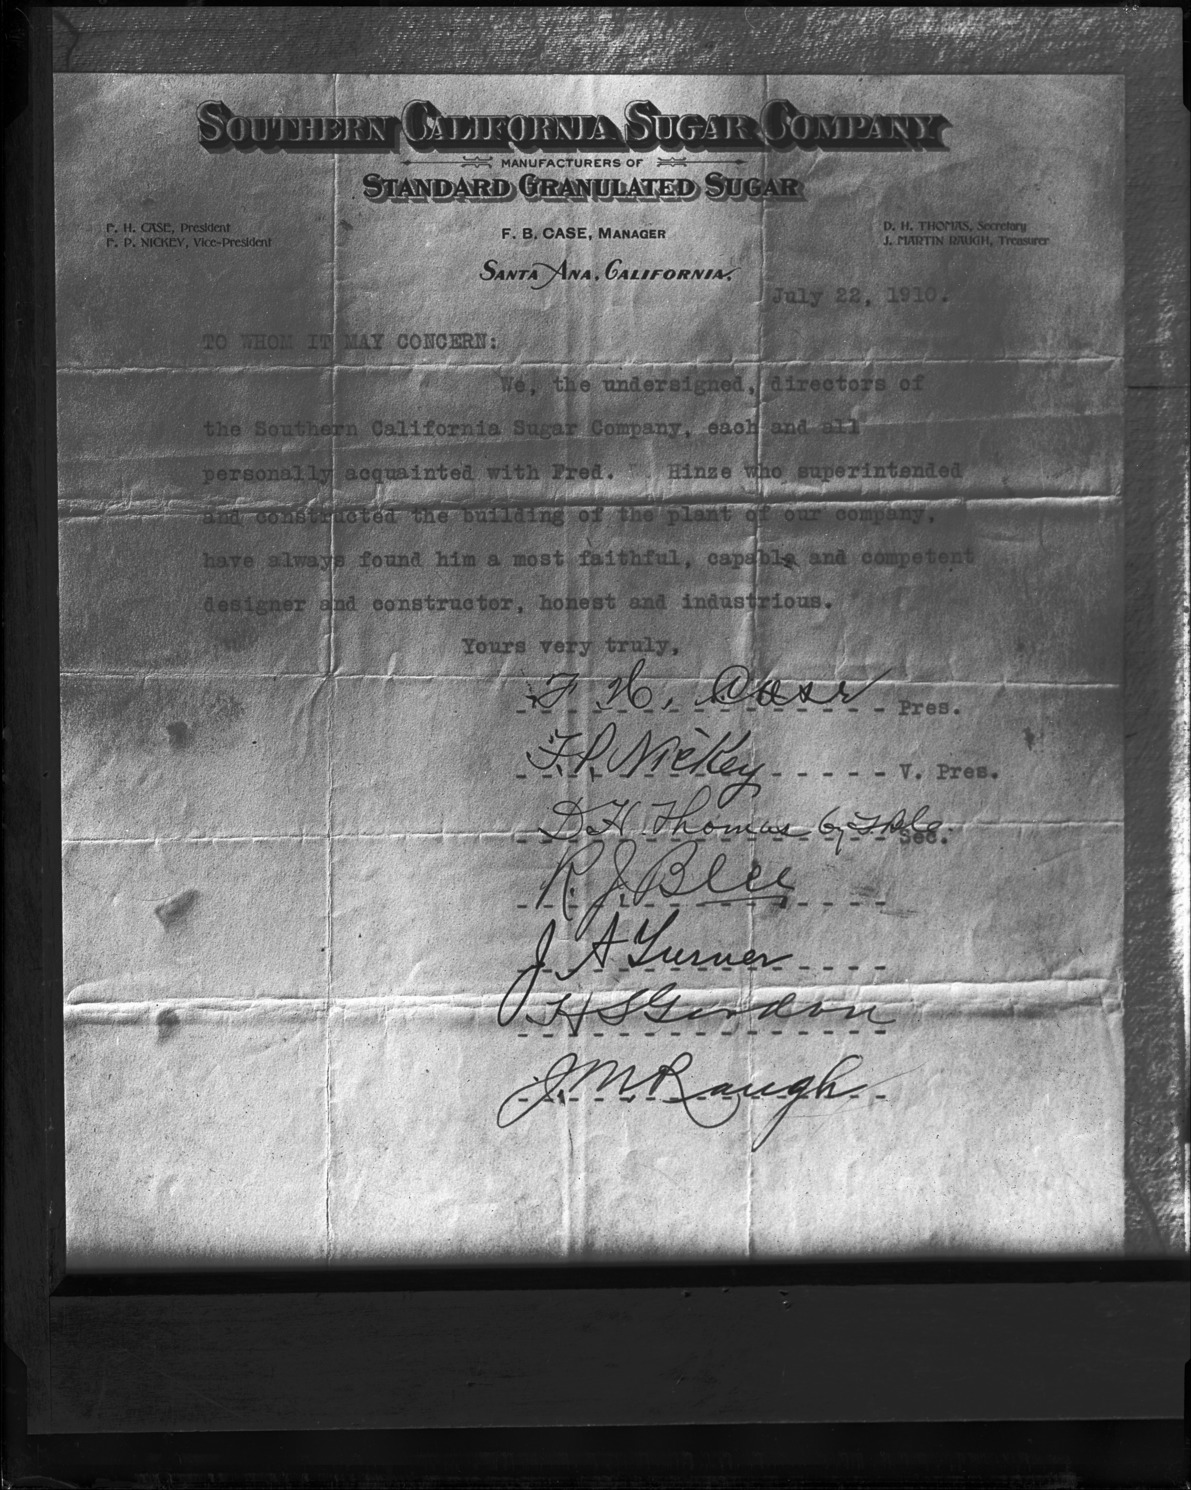 SOUTHERN CALIFORNIA SUGAR COMPANY
MANUFACTURERS OF
STANDARD GRANULATED SUGAR
F. H. CASE, President
F. P. NICKEY, Vice-President
F. B. CASE, MANAGER
D. H. THOMAS, Secretary
J. MARTIN RAUGH, Treasurer
SANTA ANA, CALIFORNIA,
July 22, 1910.
TO WHOM IT MAY CONCERN:
We, the undersigned, directors of
the Southern California Sugar Company, each and all
personally acquainted with Fred. Hinze who superintended
and constructed the building of the plant of our company,
have always found him a most faithful, capable and competent
designer and constructor, honest and industrious.
Yours very truly,
F. H. Case Pres.
F. P. Nickey V. Pres.
D H Thomas by Sec.
R. J. Blee
J. A Turner
H S Gordon
J. M Raugh